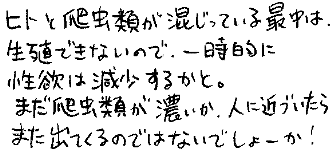 ヒトと爬虫類が混じっている最中は、
生殖できないので、一時的に
性欲は減少するかと。
まだ爬虫類が濃いか、人に近づいたら
また出てくるのではないでしょーか!